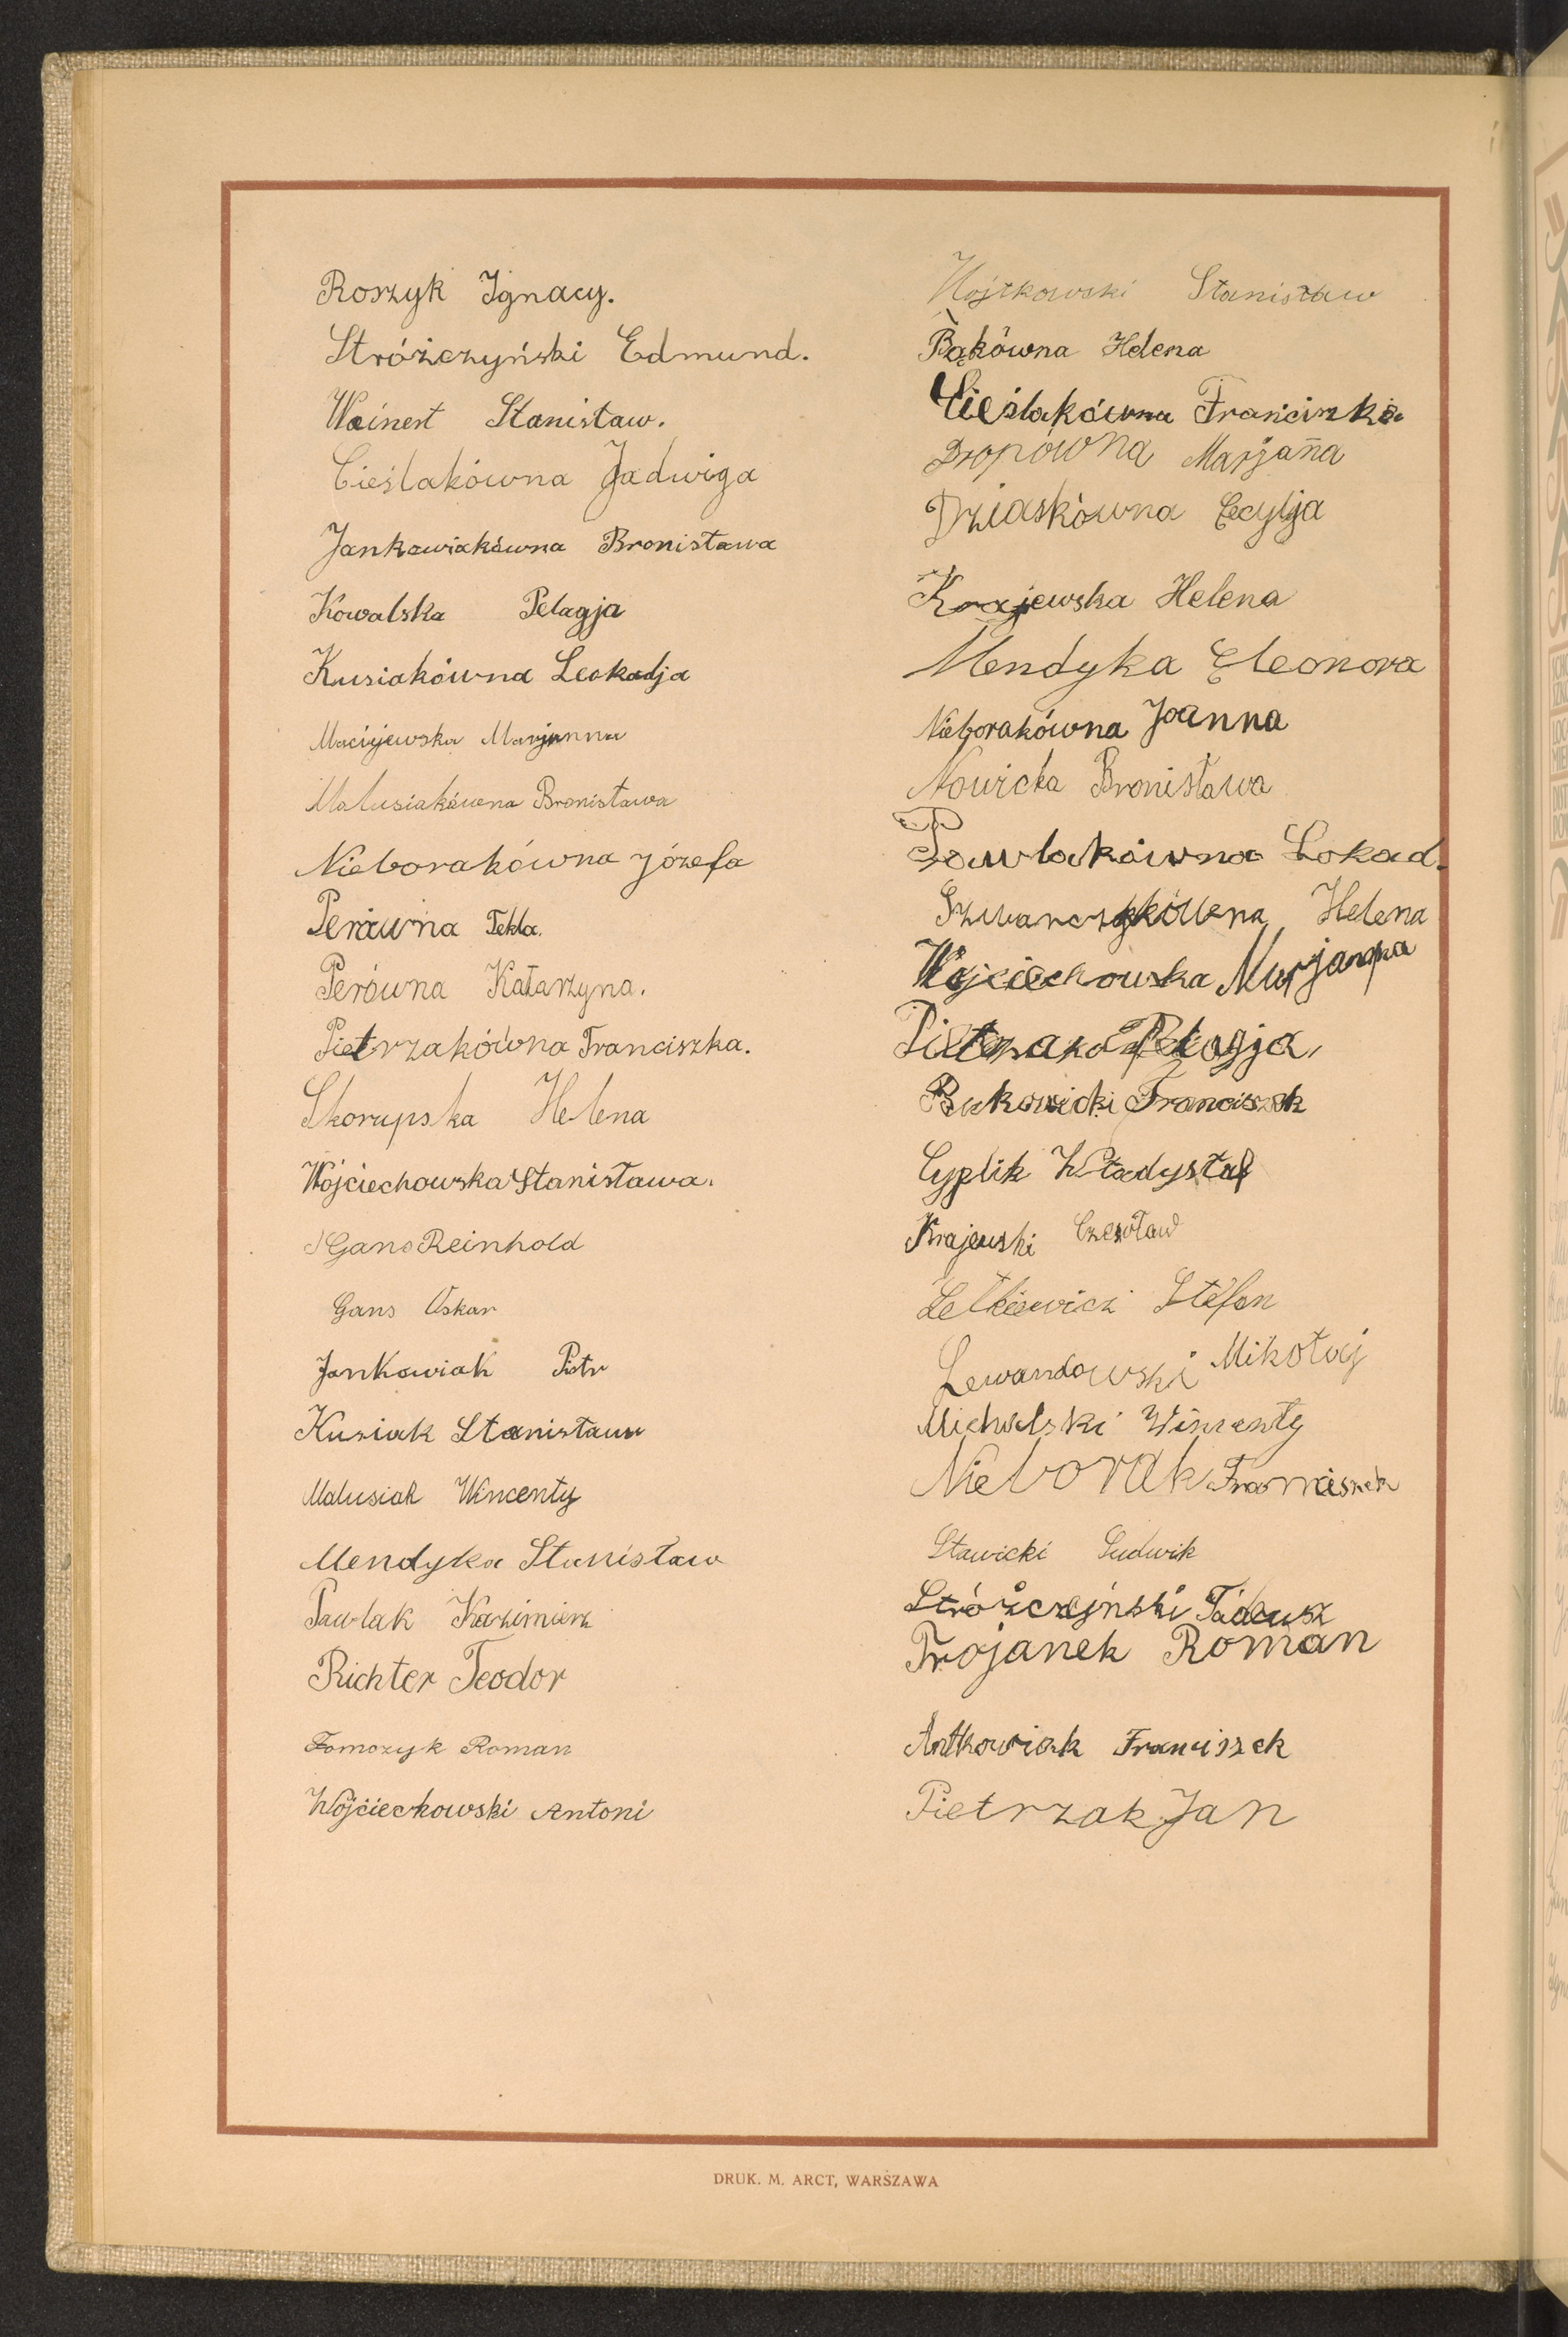 Roszyk Ignacy.
Stróżczyński Edmund.
Weinert Stanisław.
Cieślakówna Jadwiga
Jankowiakówna Bronisława
Kowalska Pelagja
Kusiakówna Leokadja
Maciejewska Marjanna
Malusiakówna Bronisława
Nieborakówna Józefa
Perówna Tekla.
Perówna Katarzyna.
Pietrzakówna Franciszka.
Skorupska Helena
Wojciechowska Stanisława.
Gans Reinhold
Gans Oskar
Jankowiak Piotr
Kusiak Stanisław
Malusiak Wincenty
Mendyka Stanisław
Pawlak Kazimierz
Richter Teodor
Tomczyk Roman
Wojciechowski Antoni
Wojtkowski Stanisław
Bąkówna Helena
Cieślakówna Franciszka
Dropówna Marjanna
Dziaskówna Cecylja
Krajewska Helena
Mendyka Eleonora
Nieborakówna Joanna
Nowicka Bronisława
Pawlakówna Lokad.
Helena
Wojciechowska Marjanna
Pelagja,
Bukowicki Franciszek
Cyplik Władysław
Krajewski Czesław
Letkiewicz Stefan
Lewandowski Mikołaj
Michalski Wincenty
Nieborak Franciszek
Stawicki Ludwik
Stróżczyński Tadeusz
Trojanek Roman
Antkowiak Franciszek
Pietrzak Jan
DRUK. M. ARCT, WARSZAWA